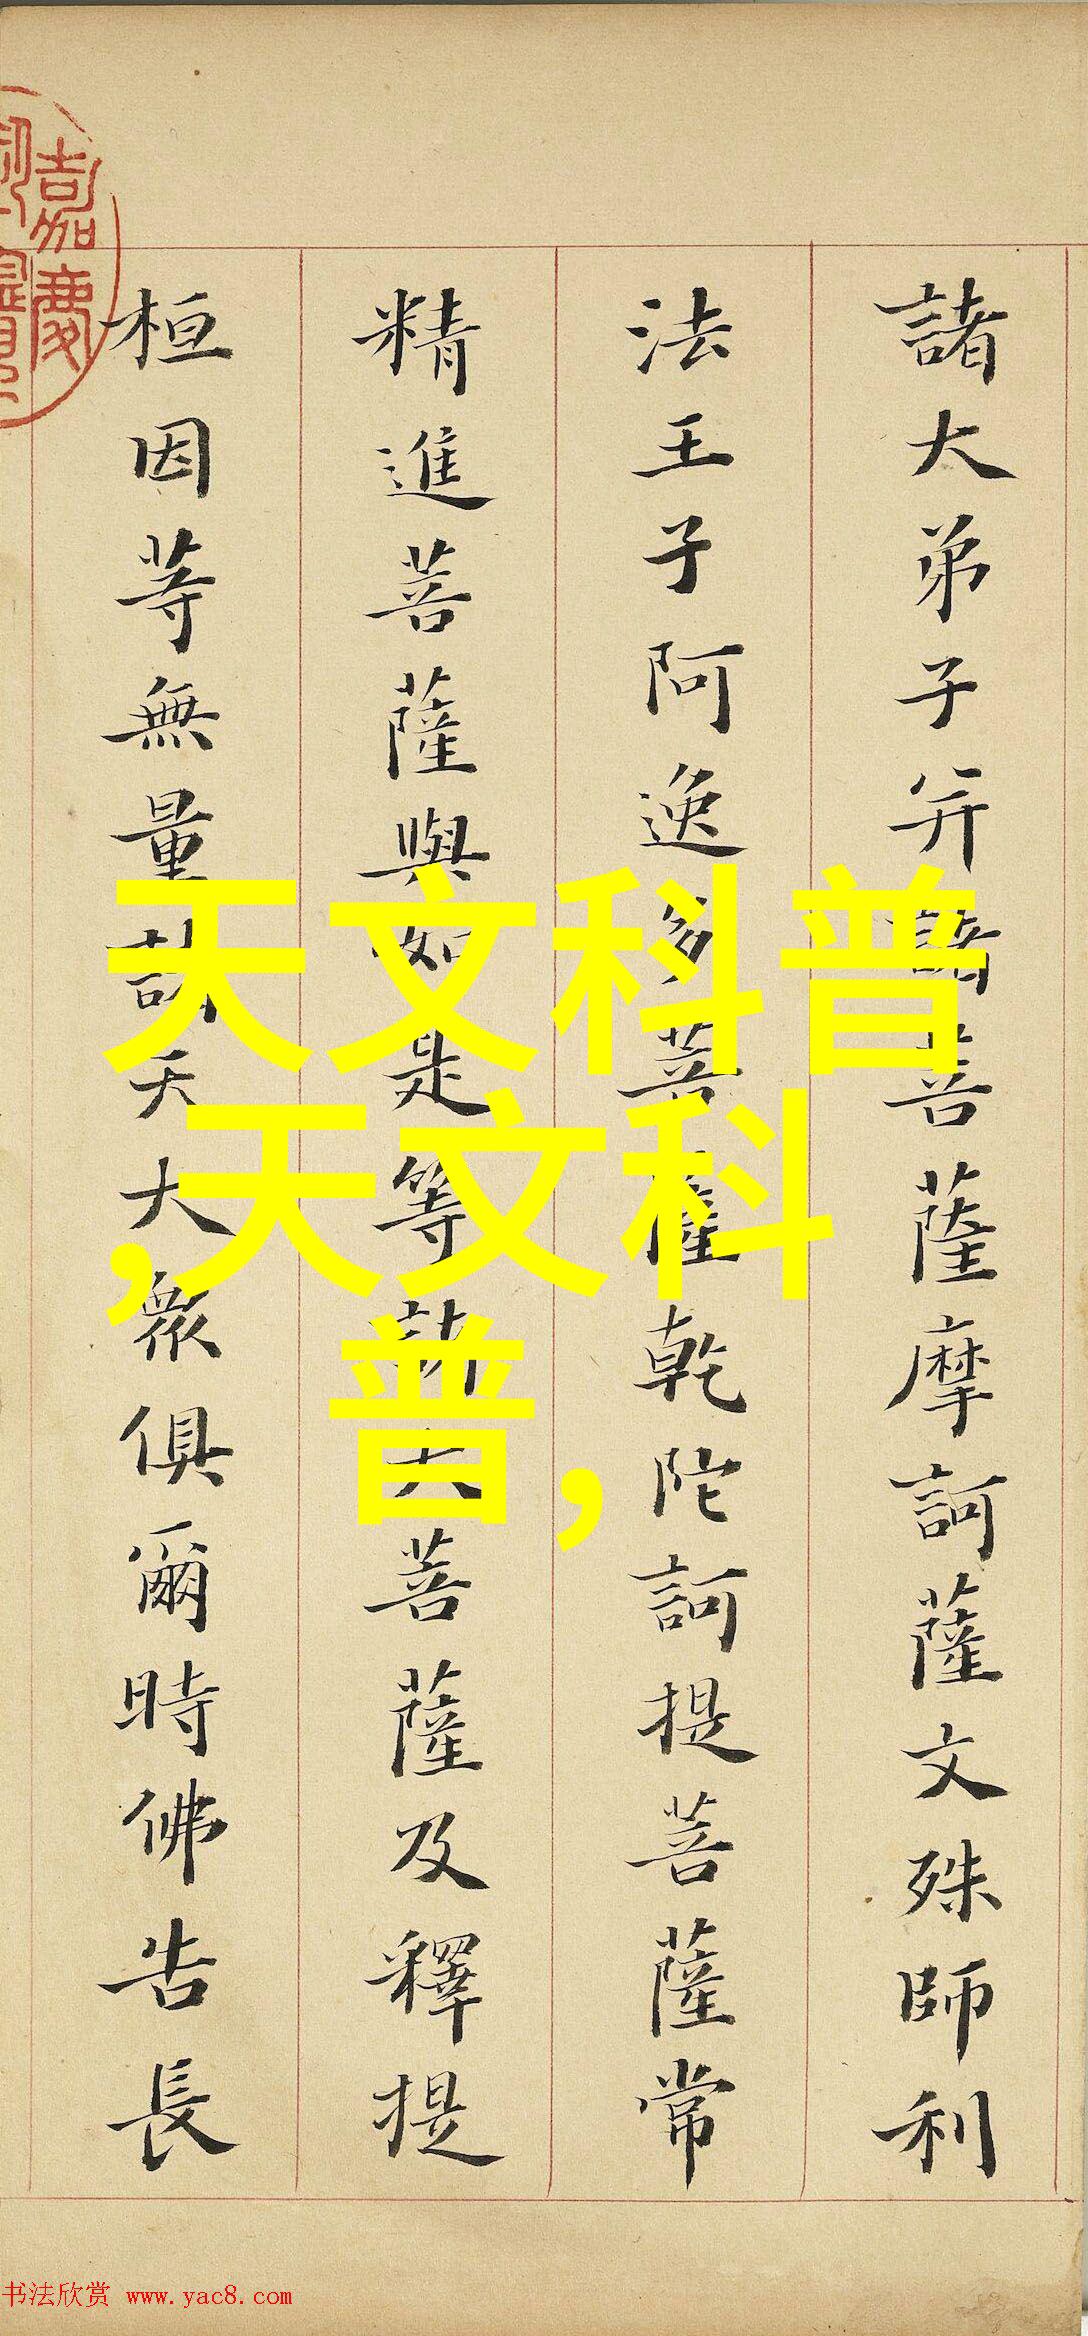 諸大弟子并諸菩薩摩訶薩文殊師利
法王子阿逸多菩薩乾陀訶提菩薩常
精進菩薩與如是等諸大菩薩及釋提
桓因等無量諸天大衆俱爾時佛告長
嘉慶
天文科普
,天文科
普,
书法欣赏 www.yac8.com